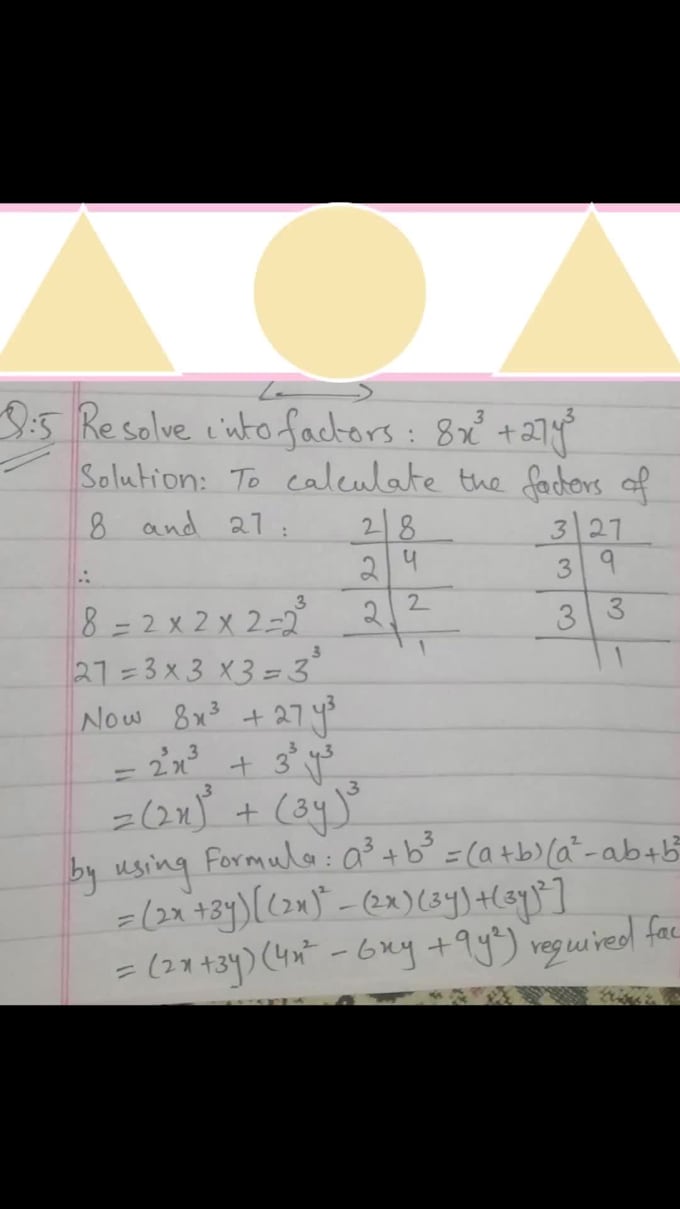 Q:5 Resolve into factors: 8x³ + 27y³
Solution: To calculate the factors of
8 and 27:
2 | 8
2 | 4
2 | 2
1
3 | 27
3 | 9
3 | 3
1
∴
8 = 2 × 2 × 2 = 2³
27 = 3 × 3 × 3 = 3³
Now 8x³ + 27y³
= 2³x³ + 3³y³
= (2x)³ + (3y)³
by using Formula: a³ + b³ = (a+b)(a² - ab + b²
= (2x + 3y)[(2x)² - (2x)(3y) + (3y)²]
= (2x + 3y)(4x² - 6xy + 9y²) required fac